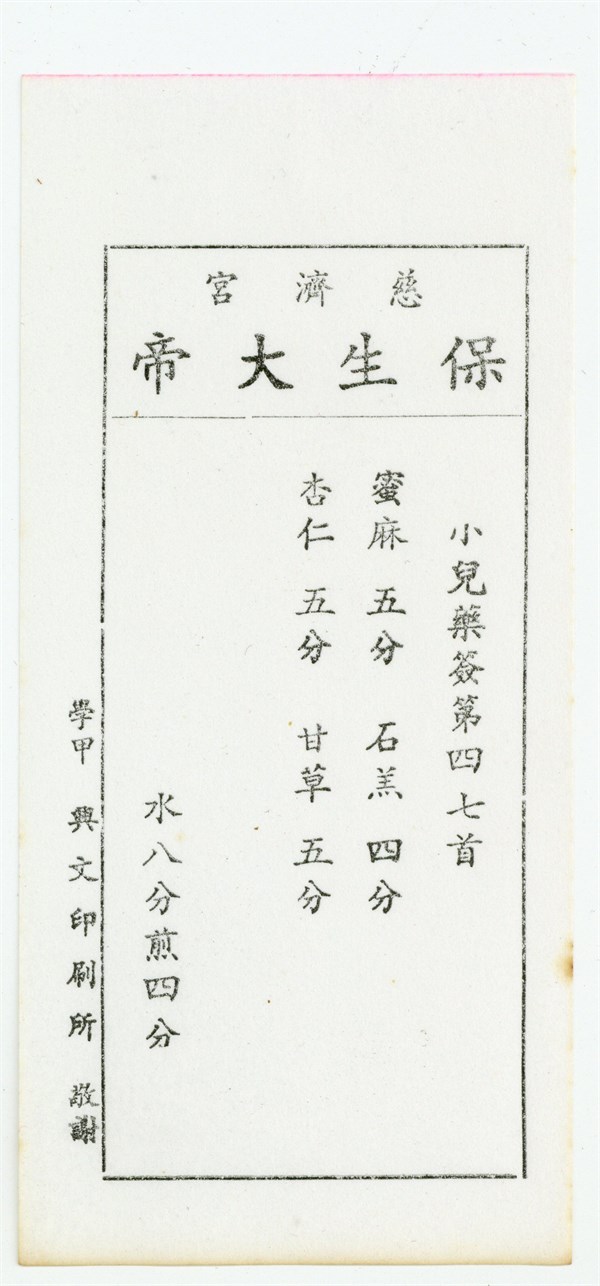 慈濟宮
保生大帝
小兒藥簽第四七首
蜜麻 五分 石羔 四分
杏仁 五分 甘草 五分
水八分煎四分
學甲 興文印刷所 敬謝